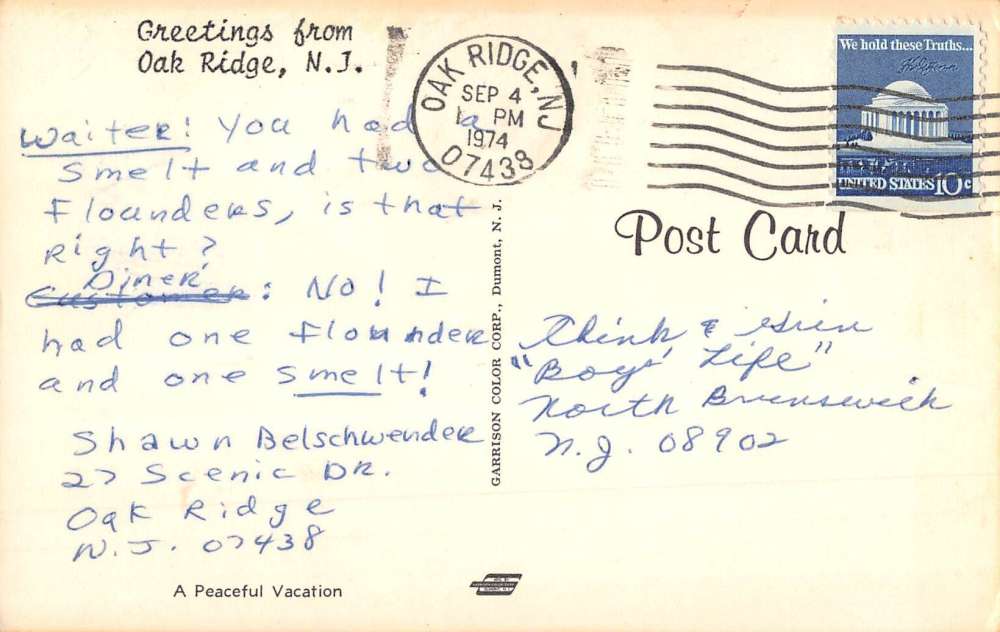 Greetings from
Oak Ridge, N.J.
OAK RIDGE, NJ
SEP 4
PM
1974
07438
We hold these Truths...
UNITED STATES 10c
Post Card
Waiter: You had a
Smelt and two
Flounders, is that
Right?
Diner
Customer: No! I
had one flounder
and one smelt!
Shawn Belschwender
27 Scenic DR.
Oak Ridge
N.J. 07438
A Peaceful Vacation
GARRISON COLOR CORP., Dumont, N. J.
Think & Grin
"Boys' Life"
North Brunswick
N.J. 08902